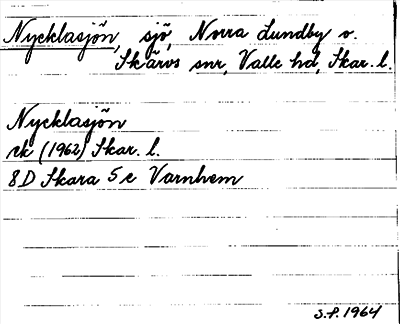 Nycklasjön, sjö, Norra Lundby o.
Skärvs snr, Valle hd, Skar. l.
Nycklasjön
rk (1962) Skar. l.
8D Skara 5 e Varnhem
S.F. 1964